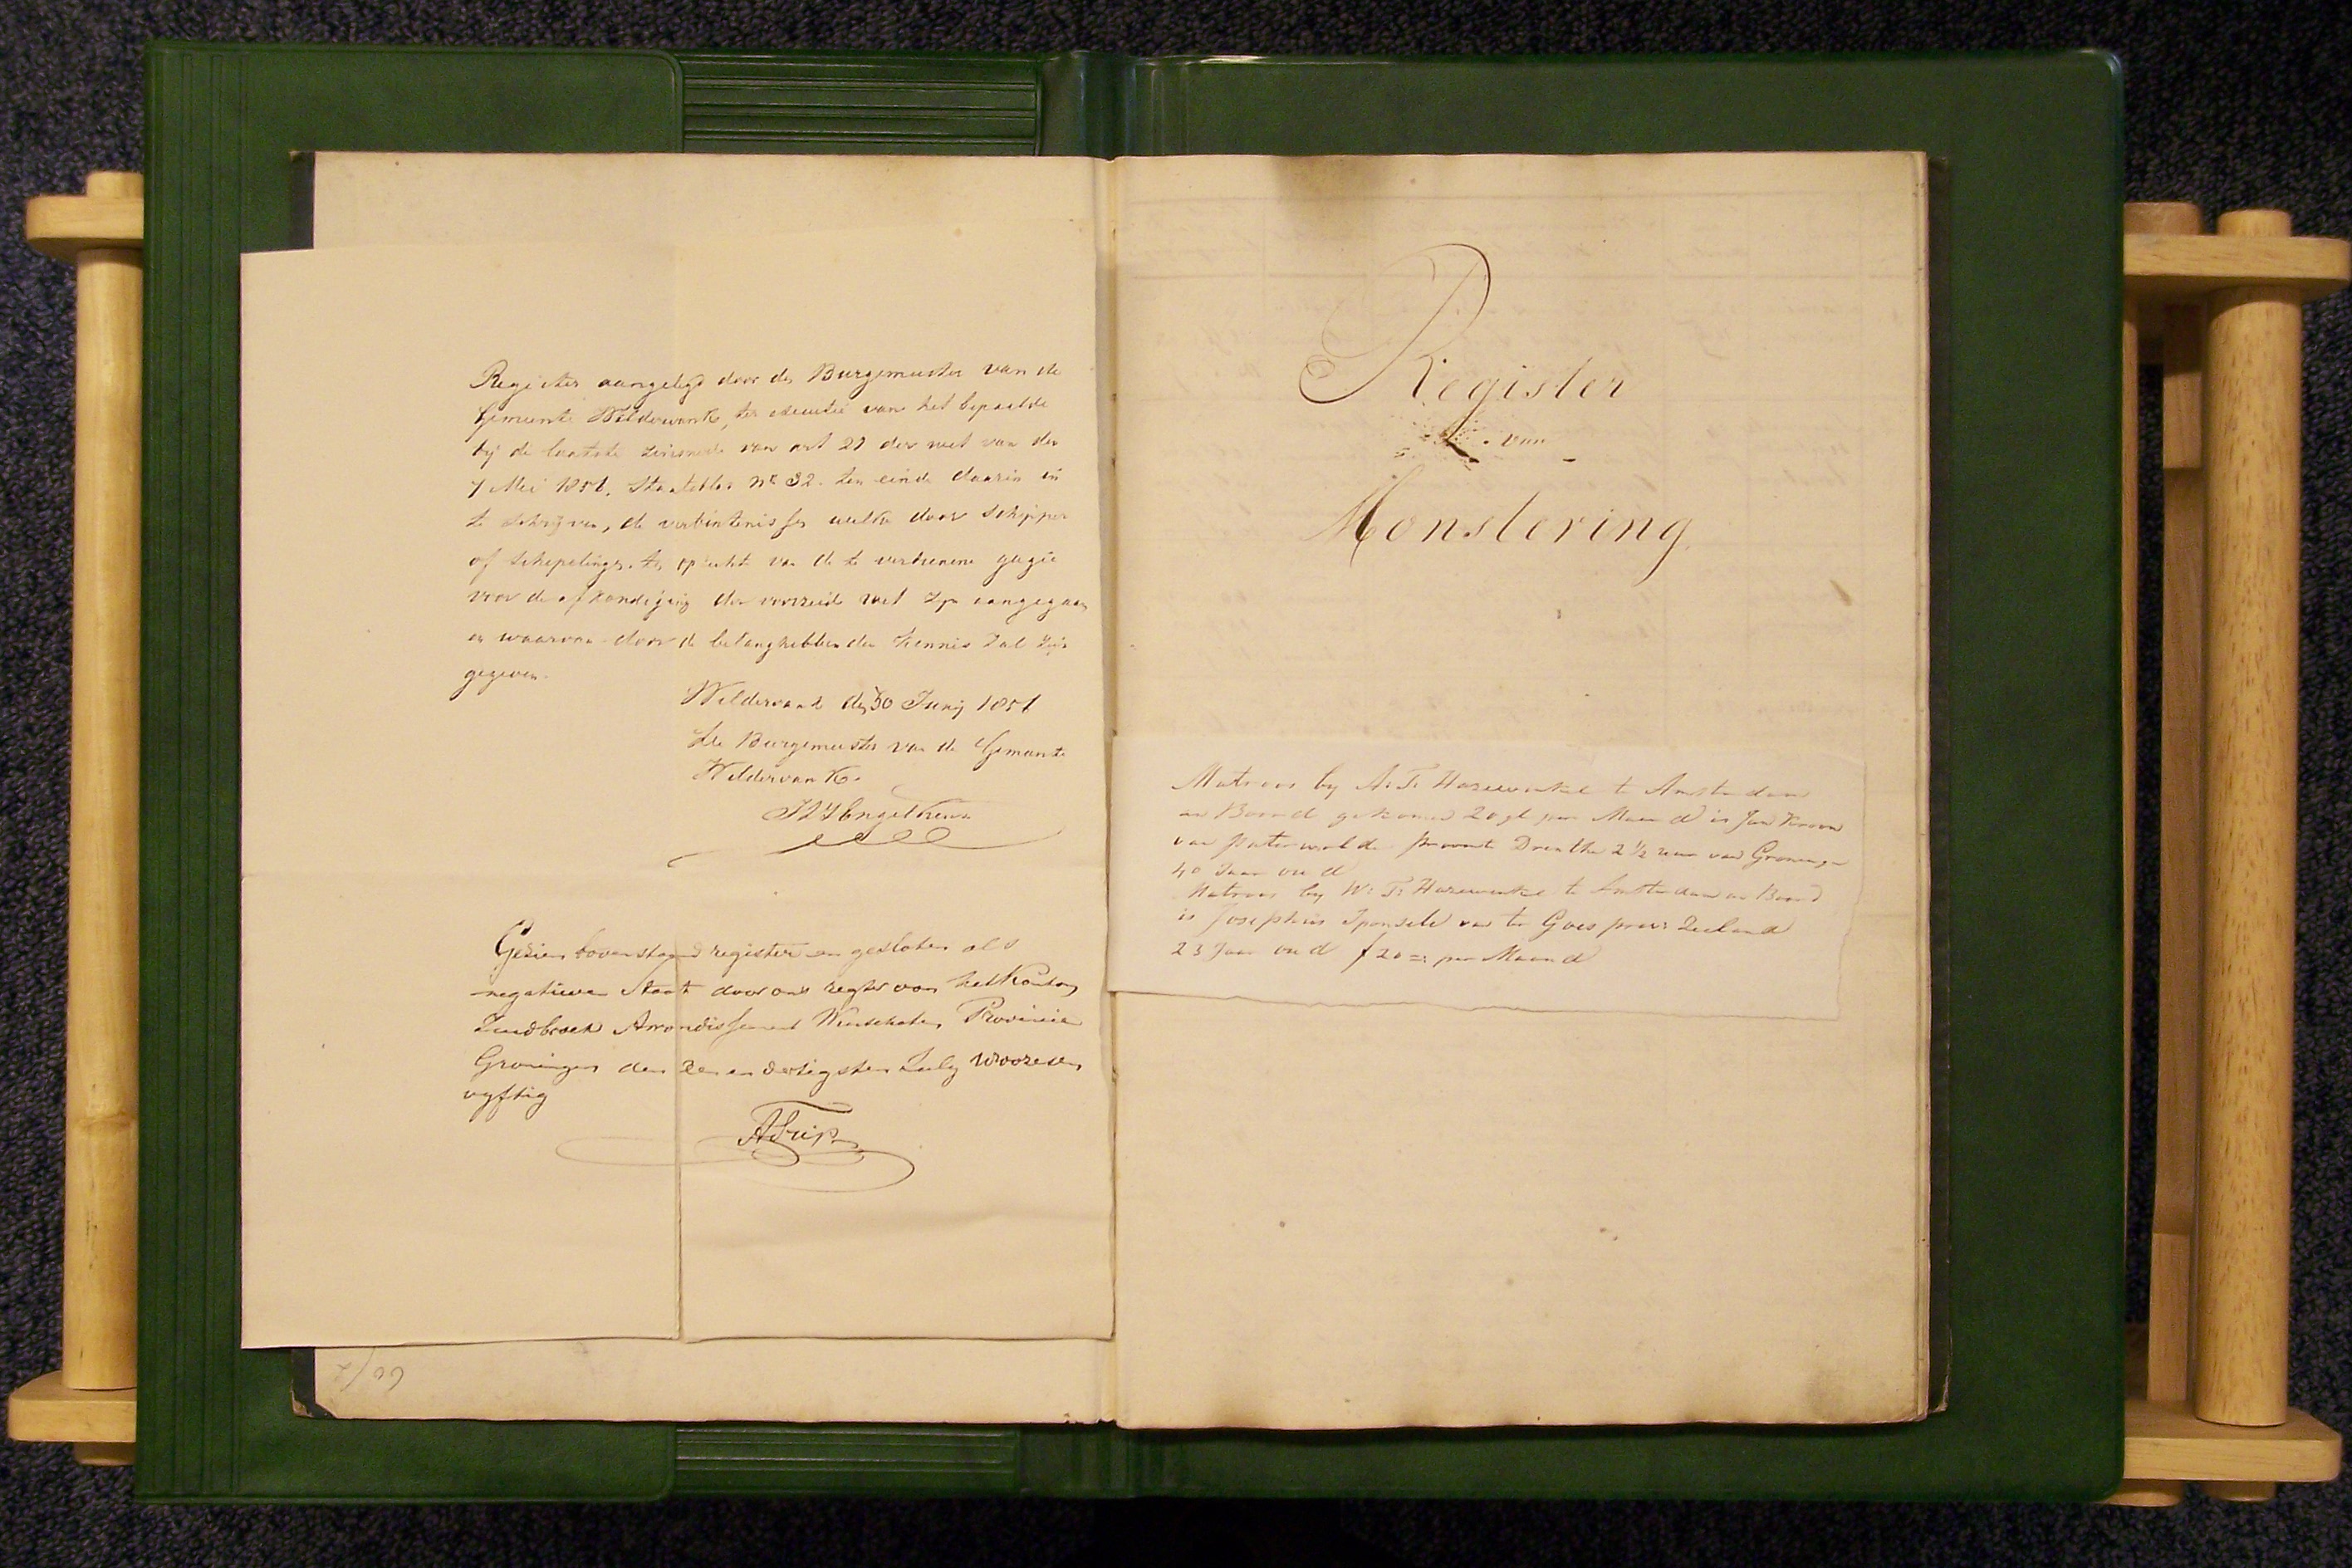 Register aangelegd door den Burgemeester van de
Gemeente Wildervank, ter executie van het bepaalde
bij de laatste zinsnede van art 21 der wet van den
7 Mei 1851. Staatsblad No 32. ten einde daarin in
te schrijven, de verbintenissen welke door schipper
of schepelingen. ten opzicht van de te verdienene gagie
voor de afkondiging der voorzeide wet zyn aangegaan
en waarvan door de belanghebbenden kennis zal zijn
gegeven.
Wildervank den 30 Junij 1851
De Burgemeester van de Gemeente
Wildervank.
Gezien bovenstaand register en gesloten als
negatieven Staat door ons regter van het Kanton
Zuidbroek Arrondissement Winschoten, Provincie
Groningen den een en dertigsten July
vyftig
ATrip
60/2
Register
van
Monstering
Matroos by A. T. Hazewinkel te Amsterdam
an Boord gekomen 20 gl per Maand is Jan Kroon
van paterwolde Drenthe 2 1/2 uur van Groningen
40 Jaar oud
Matroos by W. T. Hazewinkel te Amsterdam an Boord
is Josephus Sponsele van ter Goes prov: Zeeland
23 Jaar oud f 20 =: per Maand